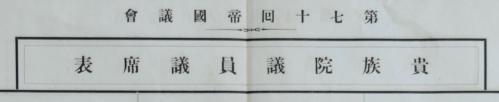 第七十回帝國議會
貴族院議員議席表